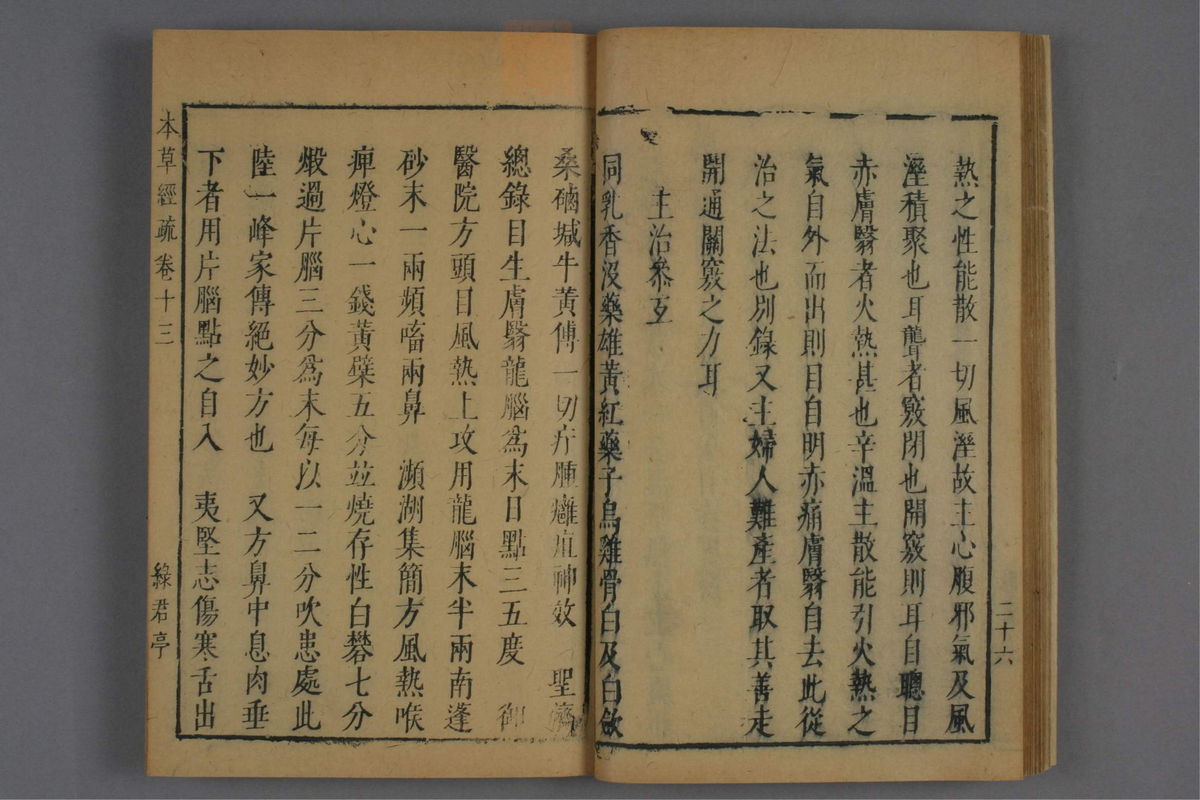 熱之性能散一切風溼故主心腹邪氣及風
溼積聚也耳聾者竅閉也開竅則耳自聰目
赤膚翳者火熱甚也辛溫主散能引火熱之
氣自外而出則目自明赤痛膚翳自去此從
治之法也別錄又主婦人難產者取其善走
開通關竅之力耳
主治參互
同乳香沒藥雄黃紅藥子烏雞骨白及白斂
二十六
桑硇堿牛黃傅一切疔腫癰疽神效 聖濟
總錄目生膚翳龍腦為末日點三五度 御
醫院方頭目風熱上攻用龍腦末半兩南蓬
砂末一兩頻㗜兩鼻 瀕湖集簡方風熱喉
痺燈心一錢黃檗五分並燒存性白礬七分
煅過片腦三分為末每以一二分吹患處此
陸一峰家傳絕妙方也 又方鼻中息肉垂
下者用片腦點之自入 夷堅志傷寒舌出
本草經疏 卷十三 綠君亭